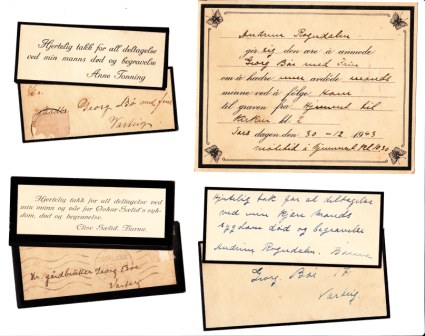 Hjertelig takk for all deltagelse
ved min manns død og begravelse
Anne Tanning
Georg Bøe med frue
Varteig
Andrine Rogndalen
gir sig den ære å anmode
Georg Bøe med Frue
om å hedre min avdøde mands
minne ved å følge ham
til graven fra hjemmet til
Kirken kl. 2
Tors dagen den 30 - 12 - 1943
møtetid i hjemmet kl.
Hjertelig takk for all deltagelse ved
min mann og vår far Oskar sykdom,
død og begravelse.
Else
Hr. gårdbruker Georg Bøe
Varteig
Hjertelig tak for al deltagelse
ved min kjære mands
sygdom død og begravelse
Andrine Rogndalen.
Georg Bøe
Varteig